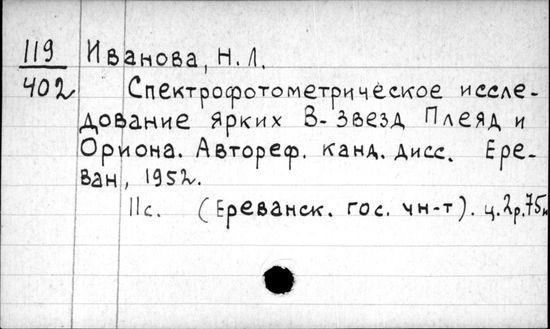 119 Иванова, Н.Л.
402 Спектрофотометрическое иссле-
дование ярких В-звезд Плеяд и
Ориона. Автореф. канд. дисс. Ере-
ван, 1952.
11с. (Ереванск. гос. ун-т). ц. 2р. 75к